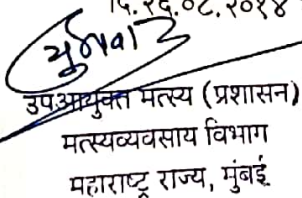 दि.२६.०८.२०१४
उपआयुक्त मत्स्य (प्रशासन)
मत्स्यव्यवसाय विभाग
महाराष्ट्र राज्य, मुंबई